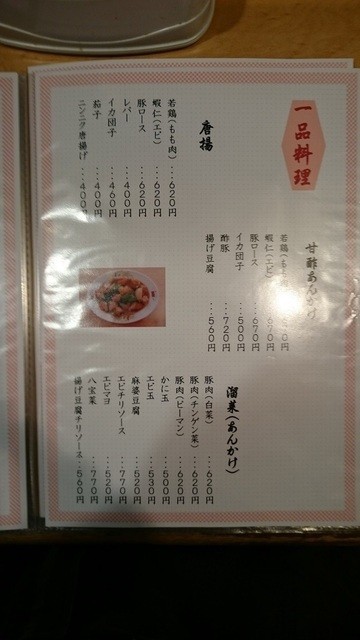 一品料理
唐揚
若鶏(もも肉)…620円
蝦仁(エビ)…620円
豚ロース…620円
レバー…400円
イカ団子…400円
茄子…400円
ニンニク唐揚げ…400円
甘酢あんかけ
若鶏(もも
蝦仁(エビ)…670円
豚ロース…670円
イカ団子…500円
酢豚…720円
揚げ豆腐…560円
溜菜(あんかけ)
豚肉(白菜)…620円
豚肉(チンゲン菜)…620円
豚肉(ピーマン)…620円
かに玉…500円
エビ玉…530円
麻婆豆腐…520円
エビチリソース…770円
エビマヨ…520円
八宝菜…770円
揚げ豆腐チリソース…560円